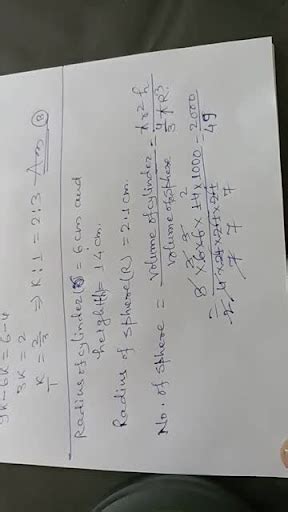 9K-6K = 6-4
3K = 2
K = 2/3 ⇒ K:1 = 2:3 Ans (B)
Radius of cylinder = 6 cm and
height(h) = 14 cm.
Radius of sphere (R) = 2.1 cm.
No. of sphere = volume of cylinder / volume of sphere = πr²h / 4/3 πR³
= 3×6×6×14×1000 / 4×21×21×21 = 2000/49